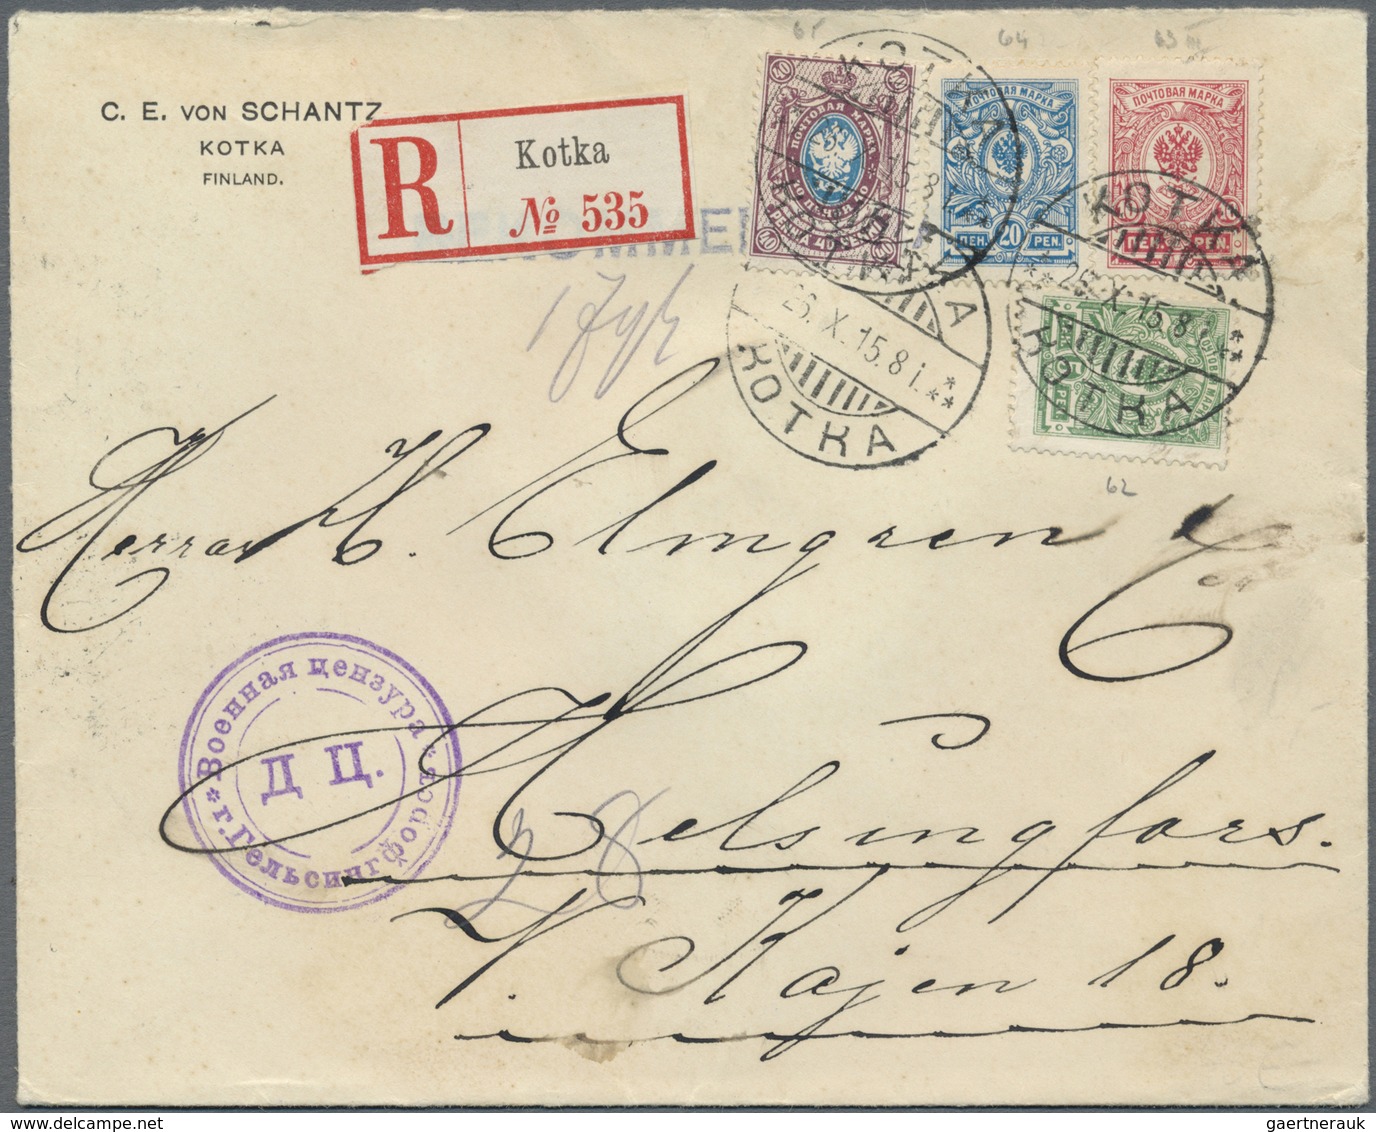 C. E. VON SCHANTZ
KOTKA
FINLAND.
R
Kotka
№ 535
61
64
63 III
ПОЧТОВАЯ МАРКА
40
40
ПОЧТОВАЯ МАРКА
ПЕН. 20 PEN.
ПОЧТОВАЯ МАРКА
KOTKA
26.X.15.8 i.
KOTKA
KOTKA
26.X.15.8 i.
KOTKA
62
Herrar H. Elmgren & C
Военная цензура
Д Ц.
г. Гельсингфорсъ
28
Helsingfors.
V. Kajen 18.
gaertnerauk